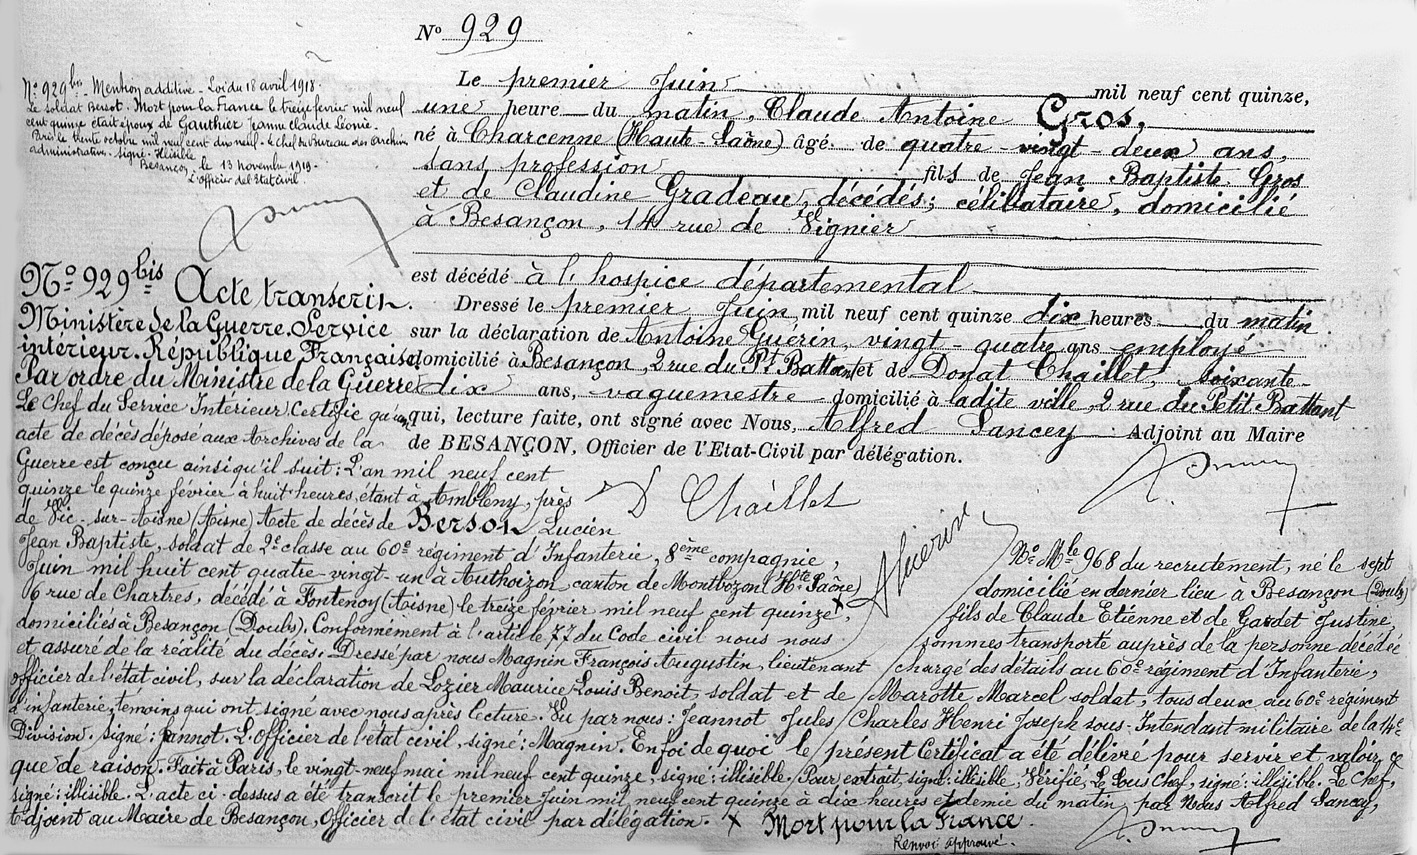 N° 929
Le premier Juin mil neuf cent quinze,
une heure du matin, Claude Antoine Gros,
né à Charcenne (Haute-Saône) âgé de quatre-vingt-deux ans,
sans profession fils de Jean Baptiste Gros
et de Claudine Gradeau, décédés; célibataire, domicilié
à Besançon, 14 rue de Vignier
est décédé à l'hospice départemental
Dressé le premier Juin mil neuf cent quinze dix heures du matin
sur la déclaration de Antoine Guérin, vingt-quatre ans employé
domicilié à Besançon, 2 rue du Pt Battant et de Donat Chaillet, soixante-
dix ans, vaguemestre domicilié à ladite ville, 2 rue du Petit Battant
qui, lecture faite, ont signé avec Nous, Alfred Sancey Adjoint au Maire
de BESANÇON, Officier de l'Etat-Civil par délégation.
D Chaillet
AGuérin
N° 929 bis - Mention additive - Loi du 18 avril 1918.
Le soldat Bersot. Mort pour la France le treize février mil neuf
cent quinze était époux de Gauthier Jeanne Claude Léonie.
Paris le trente octobre mil neuf cent dix neuf - le Chef du Bureau des Archives
administratives - signé - Illisible
Besançon le 13 novembre 1919.
L'officier de l'Etat civil
N° 929 bis Acte transcrit.
Ministère de la Guerre. Service
intérieur. République Française
Par ordre du Ministre de la Guerre
Le Chef du Service Intérieur Certifie qu'un
acte de décès déposé aux Archives de la
Guerre est conçu ainsi qu'il suit: L'an mil neuf cent
quinze le quinze février à huit heures, étant à Ambleny, près
de Vic-sur-Aisne (Aisne) Acte de décès de Bersot Lucien
Jean Baptiste, soldat de 2e classe au 60e régiment d'Infanterie, 8ème compagnie, N° Mle 968 du recrutement, né le sept
Juin mil huit cent quatre-vingt-un à Authoizon canton de Montbozon (Hte Saône) domicilié en dernier lieu à Besançon (Doubs)
6 rue de Chartres, décédé à Fontenoy (Aisne) le treize février mil neuf cent quinze, X fils de Claude Etienne et de Gardet Justine,
domiciliés à Besançon (Doubs). Conformément à l'article 77 du Code civil nous nous sommes transporté auprès de la personne décédée
et assuré de la réalité du décès. Dressé par nous Magnin François Augustin, lieutenant chargé des détails au 60e régiment d'Infanterie,
officier de l'état civil, sur la déclaration de Lozier Maurice Louis Benoit, soldat et de Marotte Marcel soldat, tous deux au 60e régiment
d'infanterie, témoins qui ont signé avec nous après lecture. Vu par nous: Jeannot Jules Charles Henri Joseph sous-Intendant militaire de la 14e
Division. signé: Jannot. L'Officier de l'état civil, signé: Magnin. En foi de quoi le présent Certificat a été délivré pour servir et valoir ce
que de raison. Fait à Paris, le vingt-neuf mai mil neuf cent quinze, signé: illisible. Pour extrait, signé: illisible, Vérifié, Le Sous Chef, signé: illisible. Le Chef,
signé: illisible. L'acte ci-dessus a été transcrit le premier Juin mil neuf cent quinze à dix heures et demie du matin, par Nous Alfred Sancey,
Adjoint au Maire de Besançon, Officier de l'état civil par délégation. X Mort pour la France.
Renvoi approuvé.